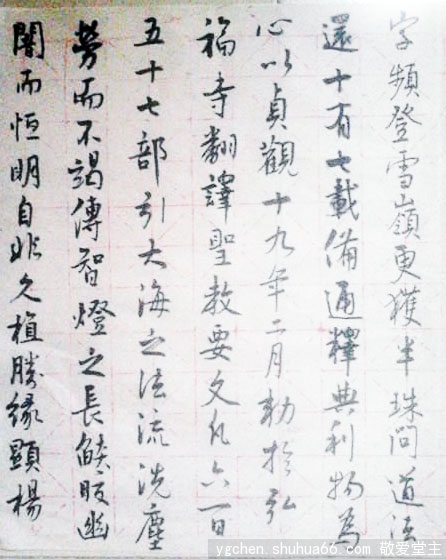 字頻登雪嶺更獲半珠問道往
還十有七載備通釋典利物為
心以貞觀十九年二月勅於弘
福寺翻譯聖教要文凡六百
五十七部引大海之法流洗塵
勞而不竭傳智燈之長燄皎幽
闇而恒明自非久植勝緣顯楊
ygchen.shuhua66.com 敬爱堂主